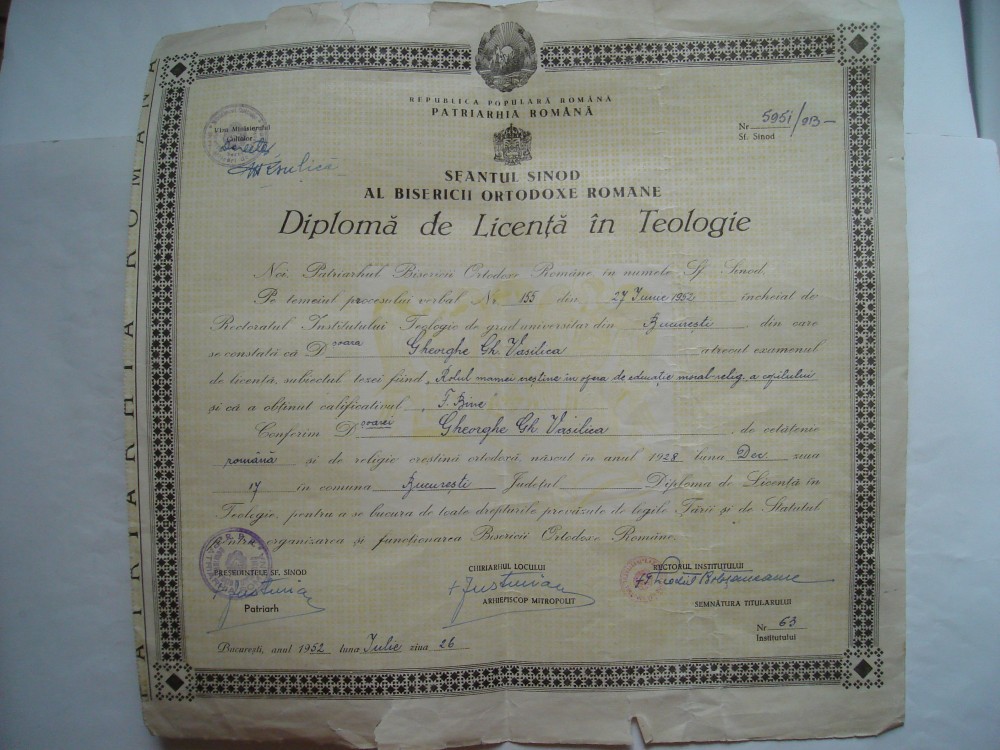 REPUBLICA POPULARĂ ROMÂNA
PATRIARHIA ROMÂNĂ
Viza Ministerului
Cultelor
Nr 5951/913 –
Sf. Sinod
SFANTUL SINOD
AL BISERICII ORTODOXE ROMANE
Diplomă de Licență în Teologie
Noi, Patriarhul Bisericii Ortodoxe Române, în numele Sf. Sinod,
Pe temeiul procesului verbal Nr 155 din 27 Iunie 1952 încheiat de
Rectoratul Institutului Teologic de grad universitar din București din care
se constată că D șoara Gheorghe Gh. Vasilica a trecut examenul
de licență, subiectul tezei fiind „Rolul mamei creștine în opera de educație moral-relig. a copilului
și că a obținut calificativul „F. Bine"
Conferim D șoarei Gheorghe Gh. Vasilica de cetățenie
română și de religie creștină ortodoxă, născut în anul 1928 luna Dec. ziua
17 în comuna București Județul Diploma de Licență în
Teologie, pentru a se bucura de toate drepturile prevăzute de legile Țării și de Statutul
pentru organizarea și funcționarea Bisericii Ortodoxe Române.
PREȘEDINTELE SF. SINOD
† Justinian
Patriarh
CHIRIARHUL LOCULUI
† Justinian
ARHIEPISCOP MITROPOLIT
RECTORUL INSTITUTULUI
SEMNĂTURA TITULARULUI
Nr 63
Institutului
București, anul 1952 luna Iulie ziua 26
PATRIARHIA ROMANA